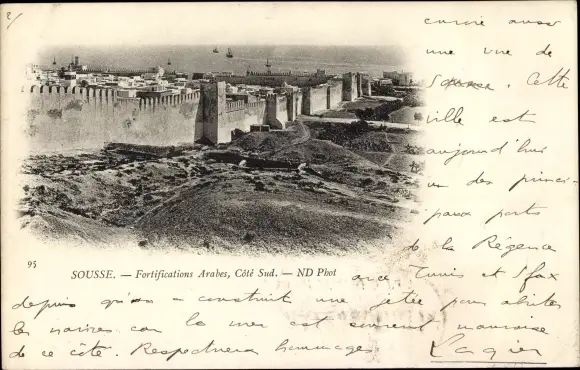 2/
envoie aussi
une vue de
Sousse. Cette
ville est
aujourd'hui
un des princi-
paux ports
de la Régence
95
SOUSSE. — Fortifications Arabes, Côté Sud. — ND Phot
avec Tunis et Sfax
depuis qu'on a construit une jetée pour abriter
les navires car la mer est souvent mauvaise
de ce côté. Respectueux hommages